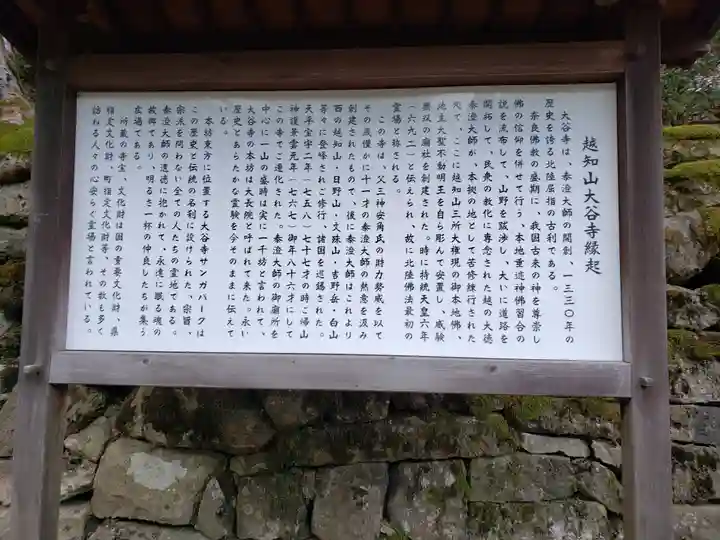 越知山大谷寺縁起
大谷寺は、泰澄大師の開創、一三三〇年の
歴史を誇る北陸屈指の古刹である。
奈良佛教の盛期に、我国古来の神を尊崇し
佛の信仰を併せて行う、本地垂迹神佛習合の
説を流布して、山野を跋渉し、大いに道路を
開拓して、民衆の教化に専念された越の大徳
泰澄大師が、本拠の地として苦修練行された
処で、ここに越知山三所大権現の御本地佛、
地主大聖不動明王を自ら彫んで安置し、威験
無双の廟社を創建された。時に持統天皇六年
(六九二)と伝えられ、故に北陸佛法最初の
霊場と称される。
この寺は、父三神安角氏の財力勢威を以て
その歳僅かに十一才の泰澄大師の熱意を汲み
創建されたもので、後に泰澄大師はこれより
西の越知山・日野山・文殊山・吉野岳・白山
等々に登峰されご修行、諸国を巡錫された。
天平宝字二年(七五八)七十七才の時ご帰山
神護景雲元年(七六七)御年八十六才にして
この寺でご遷化された。泰澄大師の御廟所を
中心に一山の盛時は実に一千坊と言われて、
大谷寺の本坊は大長院と呼ばれて来た。永い
歴史とあらたかな霊験を今そのままに伝えて
いる。
本坊東方に位置する大谷寺サンガパークは
この歴史と伝統の名刹に設けられた、宗旨、
宗派を問わない全ての人たちの霊地である。
泰澄大師の遺徳に抱かれて、永遠に眠る魂の
故郷であり、明るさ一杯の仲良したちが集う
広場である。
所蔵の寺宝、文化財は国の重要文化財、県
指定文化財、町指定文化財等、その数も多く
訪れる人々の心安らぐ霊場と言われている。